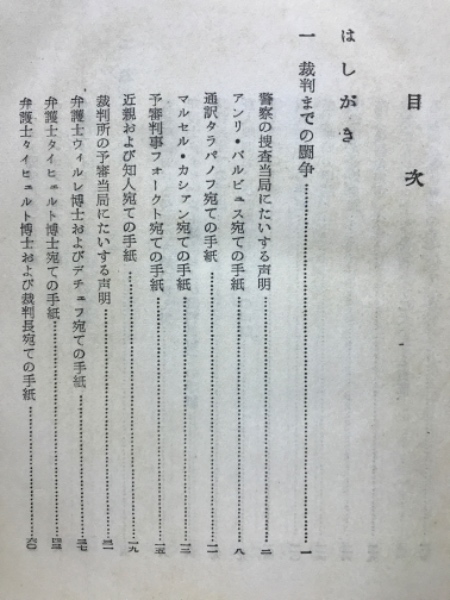 目次
はしがき
一 裁判までの闘争……一
警察の捜査当局にたいする声明……二
アンリ・バルビュス宛ての手紙……八
通訳タラパノフ宛ての手紙……一一
マルセル・カシアン宛ての手紙……一三
予審判事フォークト宛ての手紙……一五
近親および知人宛ての手紙……一九
裁判所の予審当局にたいする声明……三一
弁護士ウィルレ博士およびデチェフ宛ての手紙……三七
弁護士タイヒェルト博士宛ての手紙……四三
弁護士タイヒェルト博士および裁判長宛ての手紙……六〇